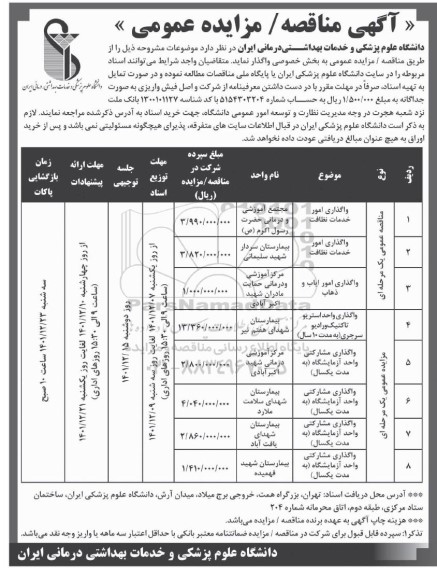 « آگهی مناقصه/ مزایده عمومی »
دانشگاه علوم پزشکی و خدمات بهداشتی‌درمانی ایران در نظر دارد موضوعات مشروحه ذیل را از
طریق مناقصه / مزایده عمومی به بخش خصوصی واگذار نماید. متقاضیان واجد شرایط می‌توانند اسناد
مربوطه را در سایت دانشگاه علوم پزشکی ایران یا پایگاه ملی مناقصات مطالعه نموده و در صورت تمایل
به تهیه اسناد، صرفاً در مهلت مقرر با در دست داشتن معرفینامه از شرکت و اصل فیش واریزی به صورت
جداگانه به مبلغ ۱/۵۰۰/۰۰۰ ریال به حساب شماره ۵۱۵۴۳۰۳۲۰۴ با کد شناسه ۱۳۰۰۱۰۱۱۲۷ بانک ملت
نزد شعبه هجرت در وجه مدیریت نظارت و توسعه امور عمومی دانشگاه، جهت خرید اسناد به آدرس ذکرشده مراجعه نمایند. لازم
به ذکر است دانشگاه علوم پزشکی ایران در قبال اطلاعات سایت های متفرقه، پذیرای هیچگونه مسئولیتی نمی باشد و پس از خرید
اوراق به هیچ عنوان مبالغ دریافتی عودت داده نخواهد شد.
دانشگاه علوم پزشکی و خدمات بهداشتی درمانی ایران
ردیف
نوع
موضوع
نام واحد
مبلغ سپرده شرکت در مناقصه/مزایده (ریال)
مهلت توزیع اسناد
جلسه توجیهی
مهلت ارائه پیشنهادات
زمان بازگشایی پاکات
مناقصه عمومی یک مرحله ای
۱ واگذاری امور خدمات نظافت مجتمع آموزشی و درمانی حضرت رسول اکرم (ص) ۳/۹۹۰/۰۰۰/۰۰۰
۲ واگذاری امور خدمات نظافت بیمارستان سردار شهید سلیمانی ۳/۸۲۰/۰۰۰/۰۰۰
۳ واگذاری امور ایاب و ذهاب مرکز آموزشی ودرمانی حمایت مادران شهید اکبر آبادی ۱/۰۰۰/۰۰۰/۰۰۰
مزایده عمومی یک مرحله ای
۴ واگذاری واحداستریو تاکتیک‌ورادیو سرجری(به مدت ۱۰ سال) بیمارستان شهدای هفتم تیر ۱۳/۳۶۰/۰۰۰/۰۰۰
۵ واگذاری مشارکتی واحد آزمایشگاه (به مدت یکسال) مرکز آموزشی درمانی شهید اکبر آبادی
۶ واگذاری مشارکتی واحد آزمایشگاه (به مدت یکسال) بیمارستان شهدای سلامت ملارد ۴/۰۴۰/۰۰۰/۰۰۰
۷ واگذاری مشارکتی واحد آزمایشگاه (به مدت یکسال) بیمارستان شهدای یافت آباد ۲/۸۶۰/۰۰۰/۰۰۰
۸ واگذاری مشارکتی واحد آزمایشگاه (به مدت یکسال) بیمارستان شهید فهمیده ۱/۴۱۰/۰۰۰/۰۰۰
از روز یکشنبه ۱۴۰۱/۱۲/۰۷ لغایت روز سه شنبه ۱۴۰۱/۱۲/۰۹ (ساعت ۹ الی ۱۵:۳۰ روزهای اداری)
روز دوشنبه ۱۴۰۱/۱۲/۱۵
از روز چهارشنبه ۱۴۰۱/۱۲/۱۰ لغایت روز یکشنبه ۱۴۰۱/۱۲/۲۱ (ساعت ۹ الی ۱۵:۳۰ روزهای اداری)
سه شنبه ۱۴۰۱/۱۲/۲۳ ساعت ۱۰ صبح
*** آدرس محل دریافت اسناد: تهران، بزرگراه همت، خروجی برج میلاد، میدان آرش، دانشگاه علوم پزشکی ایران، ساختمان
ستاد مرکزی، طبقه دوم، اتاق محرمانه شماره ۲۰۴
*** هزینه چاپ آگهی به عهده برنده مناقصه / مزایده می‌باشد.
تذکر۱: سپرده قابل قبول برای شرکت در مناقصه / مزایده ضمانتنامه معتبر بانکی با حداقل اعتبار سه ماهه یا واریز وجه نقد می‌باشد.
دانشگاه علوم پزشکی و خدمات بهداشتی درمانی ایران